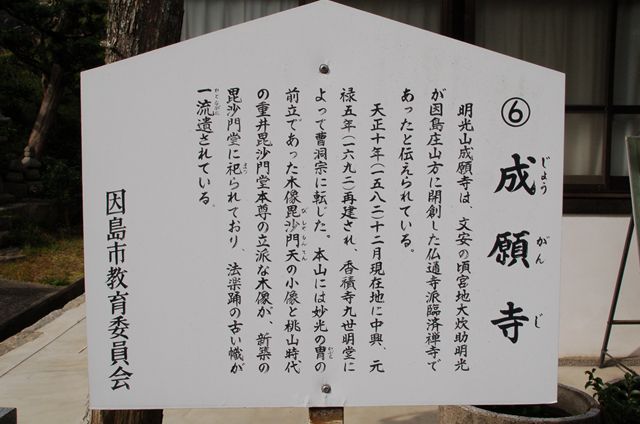 ⑥ 成願寺
じょう がん じ
明光山成願寺は、文安の頃宮地大炊助明光
が因島庄山方に開創した仏通寺派臨済禅寺で
あったと伝えられている。
天正十年(一五八二)十二月現在地に中興、元
禄五年(一六九二)再建され、香積寺九世明堂に
よって曹洞宗に転じた。本山には妙光の冑の
かぶと
前立であった木像毘沙門天の小像と桃山時代
びしゃもんてん
の重井毘沙門堂本尊の立派な木像が、新築の
毘沙門堂に祀られており、法楽踊の古い幟が
まつ
一流遺されている。
因島市教育委員会